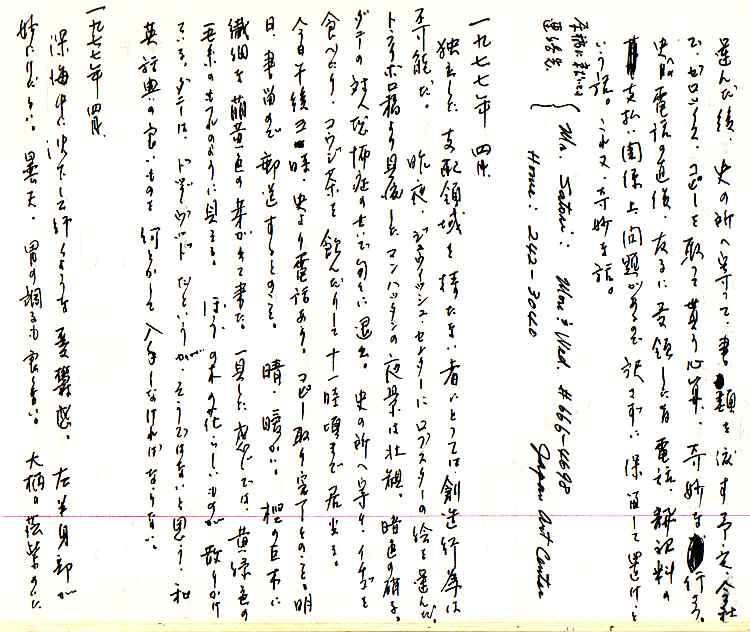 選んだ後、史の所へ寄って、書類を渡す予定、会社
で、ゼロックス、コピーを取って貰う心算、奇妙な行き方。
史に電話の直後、友子に受領した旨電話、翻訳料の
支払い関係上、問題があるので訳さずに保留して置けと
いう話。これ又、奇妙な話。
連絡先
Mr. Satoru: Mon. & Wed. #666-4698 Japan Art Center
Home: 242-3040
一九七七年 四月
独立した支配領域を持たない者にとっては創造行為は
不可能だ。 昨夜、ジュウイッシュ・センターにロブスターの絵を運んだ。
トライボロ橋より見渡したマンハッタンの夜景は壮観。暗色の硝子。
ダニーの対人恐怖症のせいで匆々に退去。 史の所へ寄り、イチゴを
食べたり、コウジ茶を飲んだりして十一時頃まで居坐る。
今日午後 時、史より電話あり。コピー取り完了とのこと。明
日、書留めで郵送するとのこと。 晴、暖かい。 樫の巨木に
繊細な萌黄色の葉が出て来た。一見した感じでは、黄緑色の
毛糸のほつれのように見える。 ほうの木の花らしいものが散りかけ
ている。ダニーは、ドッグウッドだというが、そうではないと思う。和
英辞典の良いものを何とかして入手しなければならない。
一九七七年 四月
深海中に沈下して行くような憂鬱感。 左半身部が
妙にけだるい。 曇天。 胃の調子も良くない。 大柄の